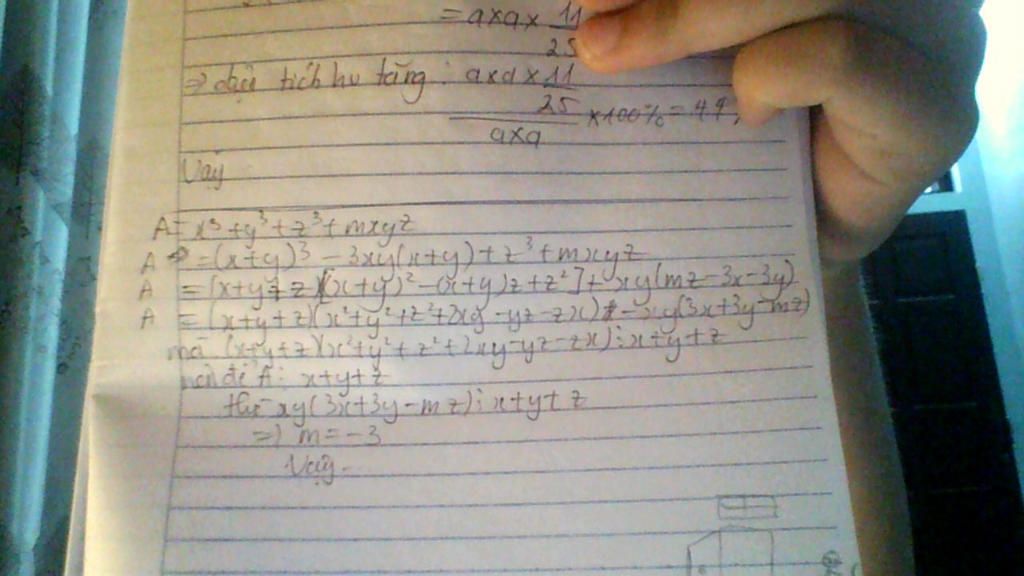 = axax 11
25
=> diện tích hv tăng : axax 11
25 x100% = 44,
axa
Vậy
A = x³+y³+z³+mxyz
A = (x+y)³ - 3xy(x+y)+z³+mxyz
A = (x+y+z)[(x+y)² -(x+y)z+z²]+ xy(mz-3x-3y)
A = (x+y+z)(x²+y²+z²+2xy-yz-zx) - xy(3x+3y-mz)
mà (x+y+z)(x²+y²+z²+2xy-yz-zx)⋮x+y+z
nên để A⋮ x+y+z
thì -xy(3x+3y-mz)⋮x+y+z
=> m=-3
Vậy.